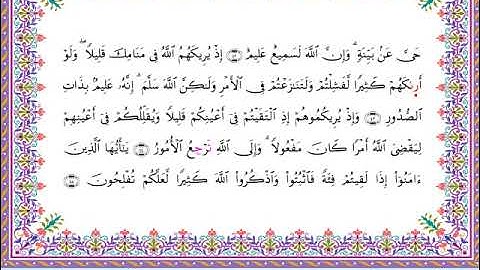 حَىَّ عَنۢ بَيِّنَةٍ ۗ وَإِنَّ ٱللَّهَ لَسَمِيعٌ عَلِيمٌ ۝٤٢ إِذْ يُرِيكَهُمُ ٱللَّهُ فِى مَنَامِكَ قَلِيلًا ۖ وَلَوْ
أَرَىٰكَهُمْ كَثِيرًا لَّفَشِلْتُمْ وَلَتَنَٰزَعْتُمْ فِى ٱلْأَمْرِ وَلَٰكِنَّ ٱللَّهَ سَلَّمَ ۗ إِنَّهُۥ عَلِيمٌۢ بِذَاتِ
ٱلصُّدُورِ ۝٤٣ وَإِذْ يُرِيكُمُوهُمْ إِذِ ٱلْتَقَيْتُمْ فِىٓ أَعْيُنِكُمْ قَلِيلًا وَيُقَلِّلُكُمْ فِىٓ أَعْيُنِهِمْ
لِيَقْضِىَ ٱللَّهُ أَمْرًا كَانَ مَفْعُولًا ۗ وَإِلَى ٱللَّهِ تُرْجَعُ ٱلْأُمُورُ ۝٤٤ يَٰٓأَيُّهَا ٱلَّذِينَ
ءَامَنُوٓا۟ إِذَا لَقِيتُمْ فِئَةً فَٱثْبُتُوا۟ وَٱذْكُرُوا۟ ٱللَّهَ كَثِيرًا لَّعَلَّكُمْ تُفْلِحُونَ ۝٤٥